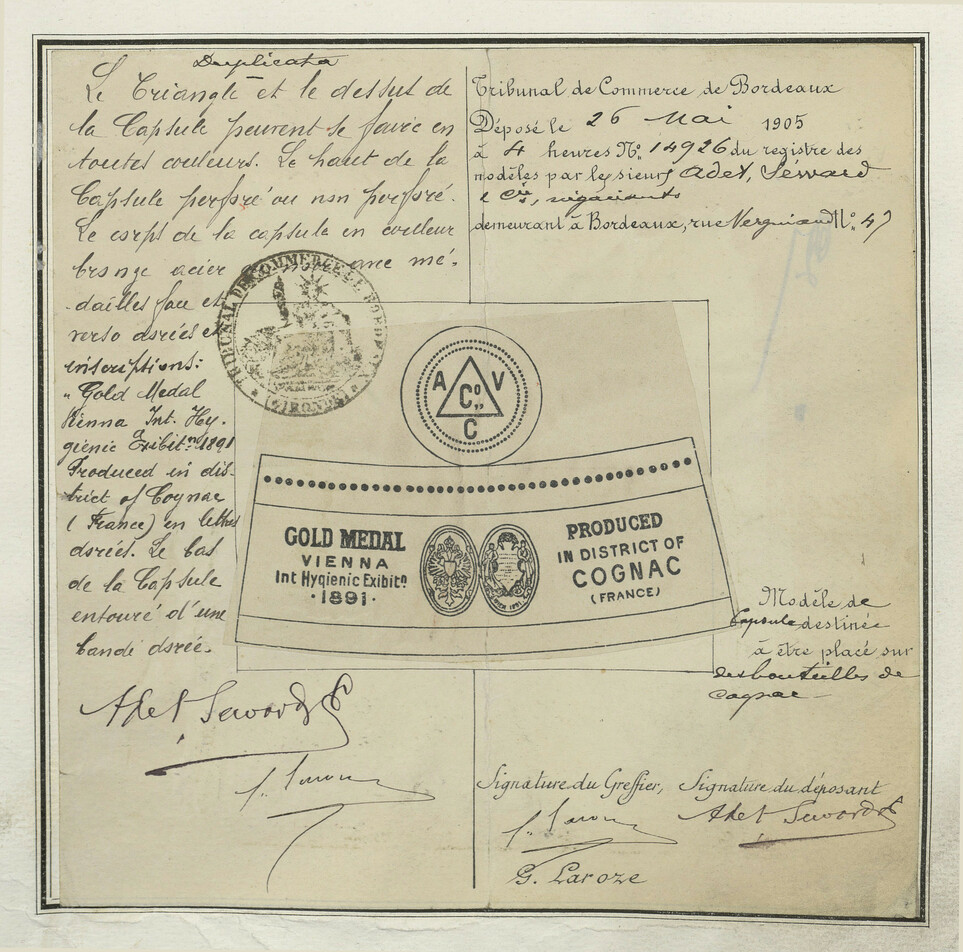 Duplicata
Le Triangle et le dessus de
la Capsule peuvent se faire en
toutes couleurs. Le haut de la
Capsule perforé ou non perforé.
Le corps de la capsule en couleur
bronze acier avec mé-
dailles face et
verso dorées et
inscriptions:
"Gold Medal
Vienna Int. Hy-
gienic Exibitn. 1891
Produced in dis-
trict of Cognac
(France) en lettres
dorées. Le bas
de la Capsule
entouré d'une
bande dorée.
Adet Seward & Cie
Tribunal de Commerce de Bordeaux
Déposé le 26 Mai 1905
à 4 heures No. 14926 du registre des
modèles par les sieurs Adet, Seward
& Cie, négociants
demeurant à Bordeaux, rue Vergniaud No. 47
TRIBUNAL DE COMMERCE DE BORDEAUX
(GIRONDE)
A V
Co.
C
GOLD MEDAL
VIENNA
Int Hygienic Exibitn.
·1891·
PRODUCED
IN DISTRICT OF
COGNAC
(FRANCE)
Modèle de
Capsule destinée
à être placé sur
des bouteilles de
cognac
Signature du Greffier, Signature du déposant
Adet Seward & Cie
G. Laroze